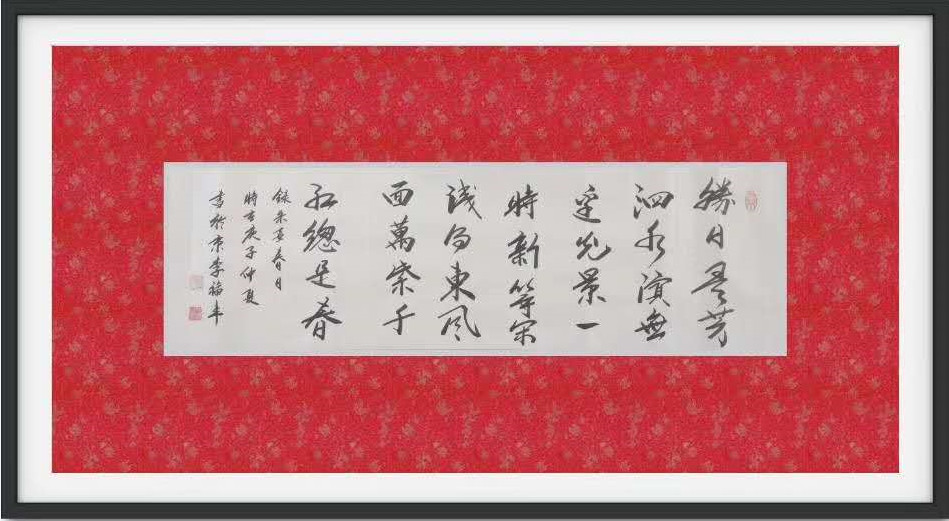 勝日尋芳
泗水濱無
邊光景一
時新等閑
識得東風
面萬紫千
紅總是春
録朱熹春日
時在庚子仲夏
書於京李福丰